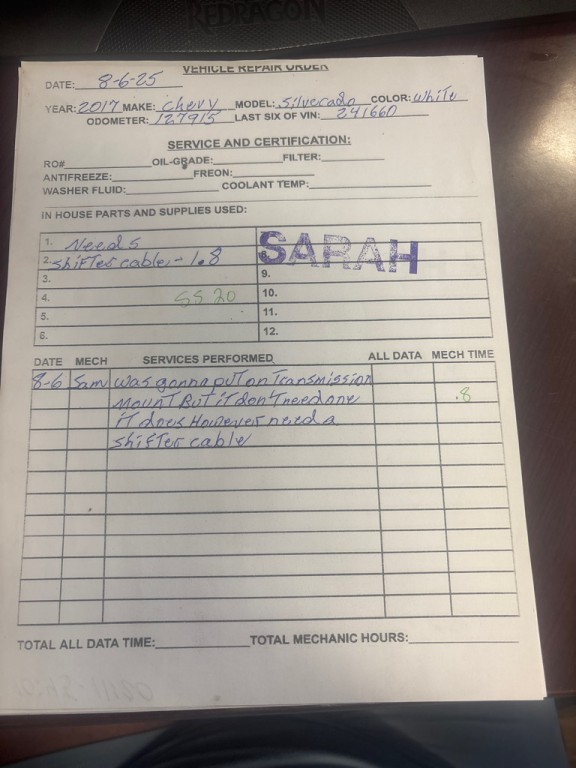 REDRAGON
VEHICLE REPAIR ORDER
DATE: 8-6-25
YEAR: 2017 MAKE: Chevy MODEL: Silverado COLOR: White
ODOMETER: 127915 LAST SIX OF VIN: 241660
SERVICE AND CERTIFICATION:
RO# OIL-GRADE: FILTER:
ANTIFREEZE: FREON:
WASHER FLUID: COOLANT TEMP:
IN HOUSE PARTS AND SUPPLIES USED:
1. Needs
2. Shifter cable - 1.8
SARAH
3. 9.
4. SS 20 10.
5. 11.
6. 12.
DATE MECH SERVICES PERFORMED ALL DATA MECH TIME
8-6 Sam was gonna put on Transmission
mount But it don't need one .8
it does However need a
shifter cable
TOTAL ALL DATA TIME: TOTAL MECHANIC HOURS: